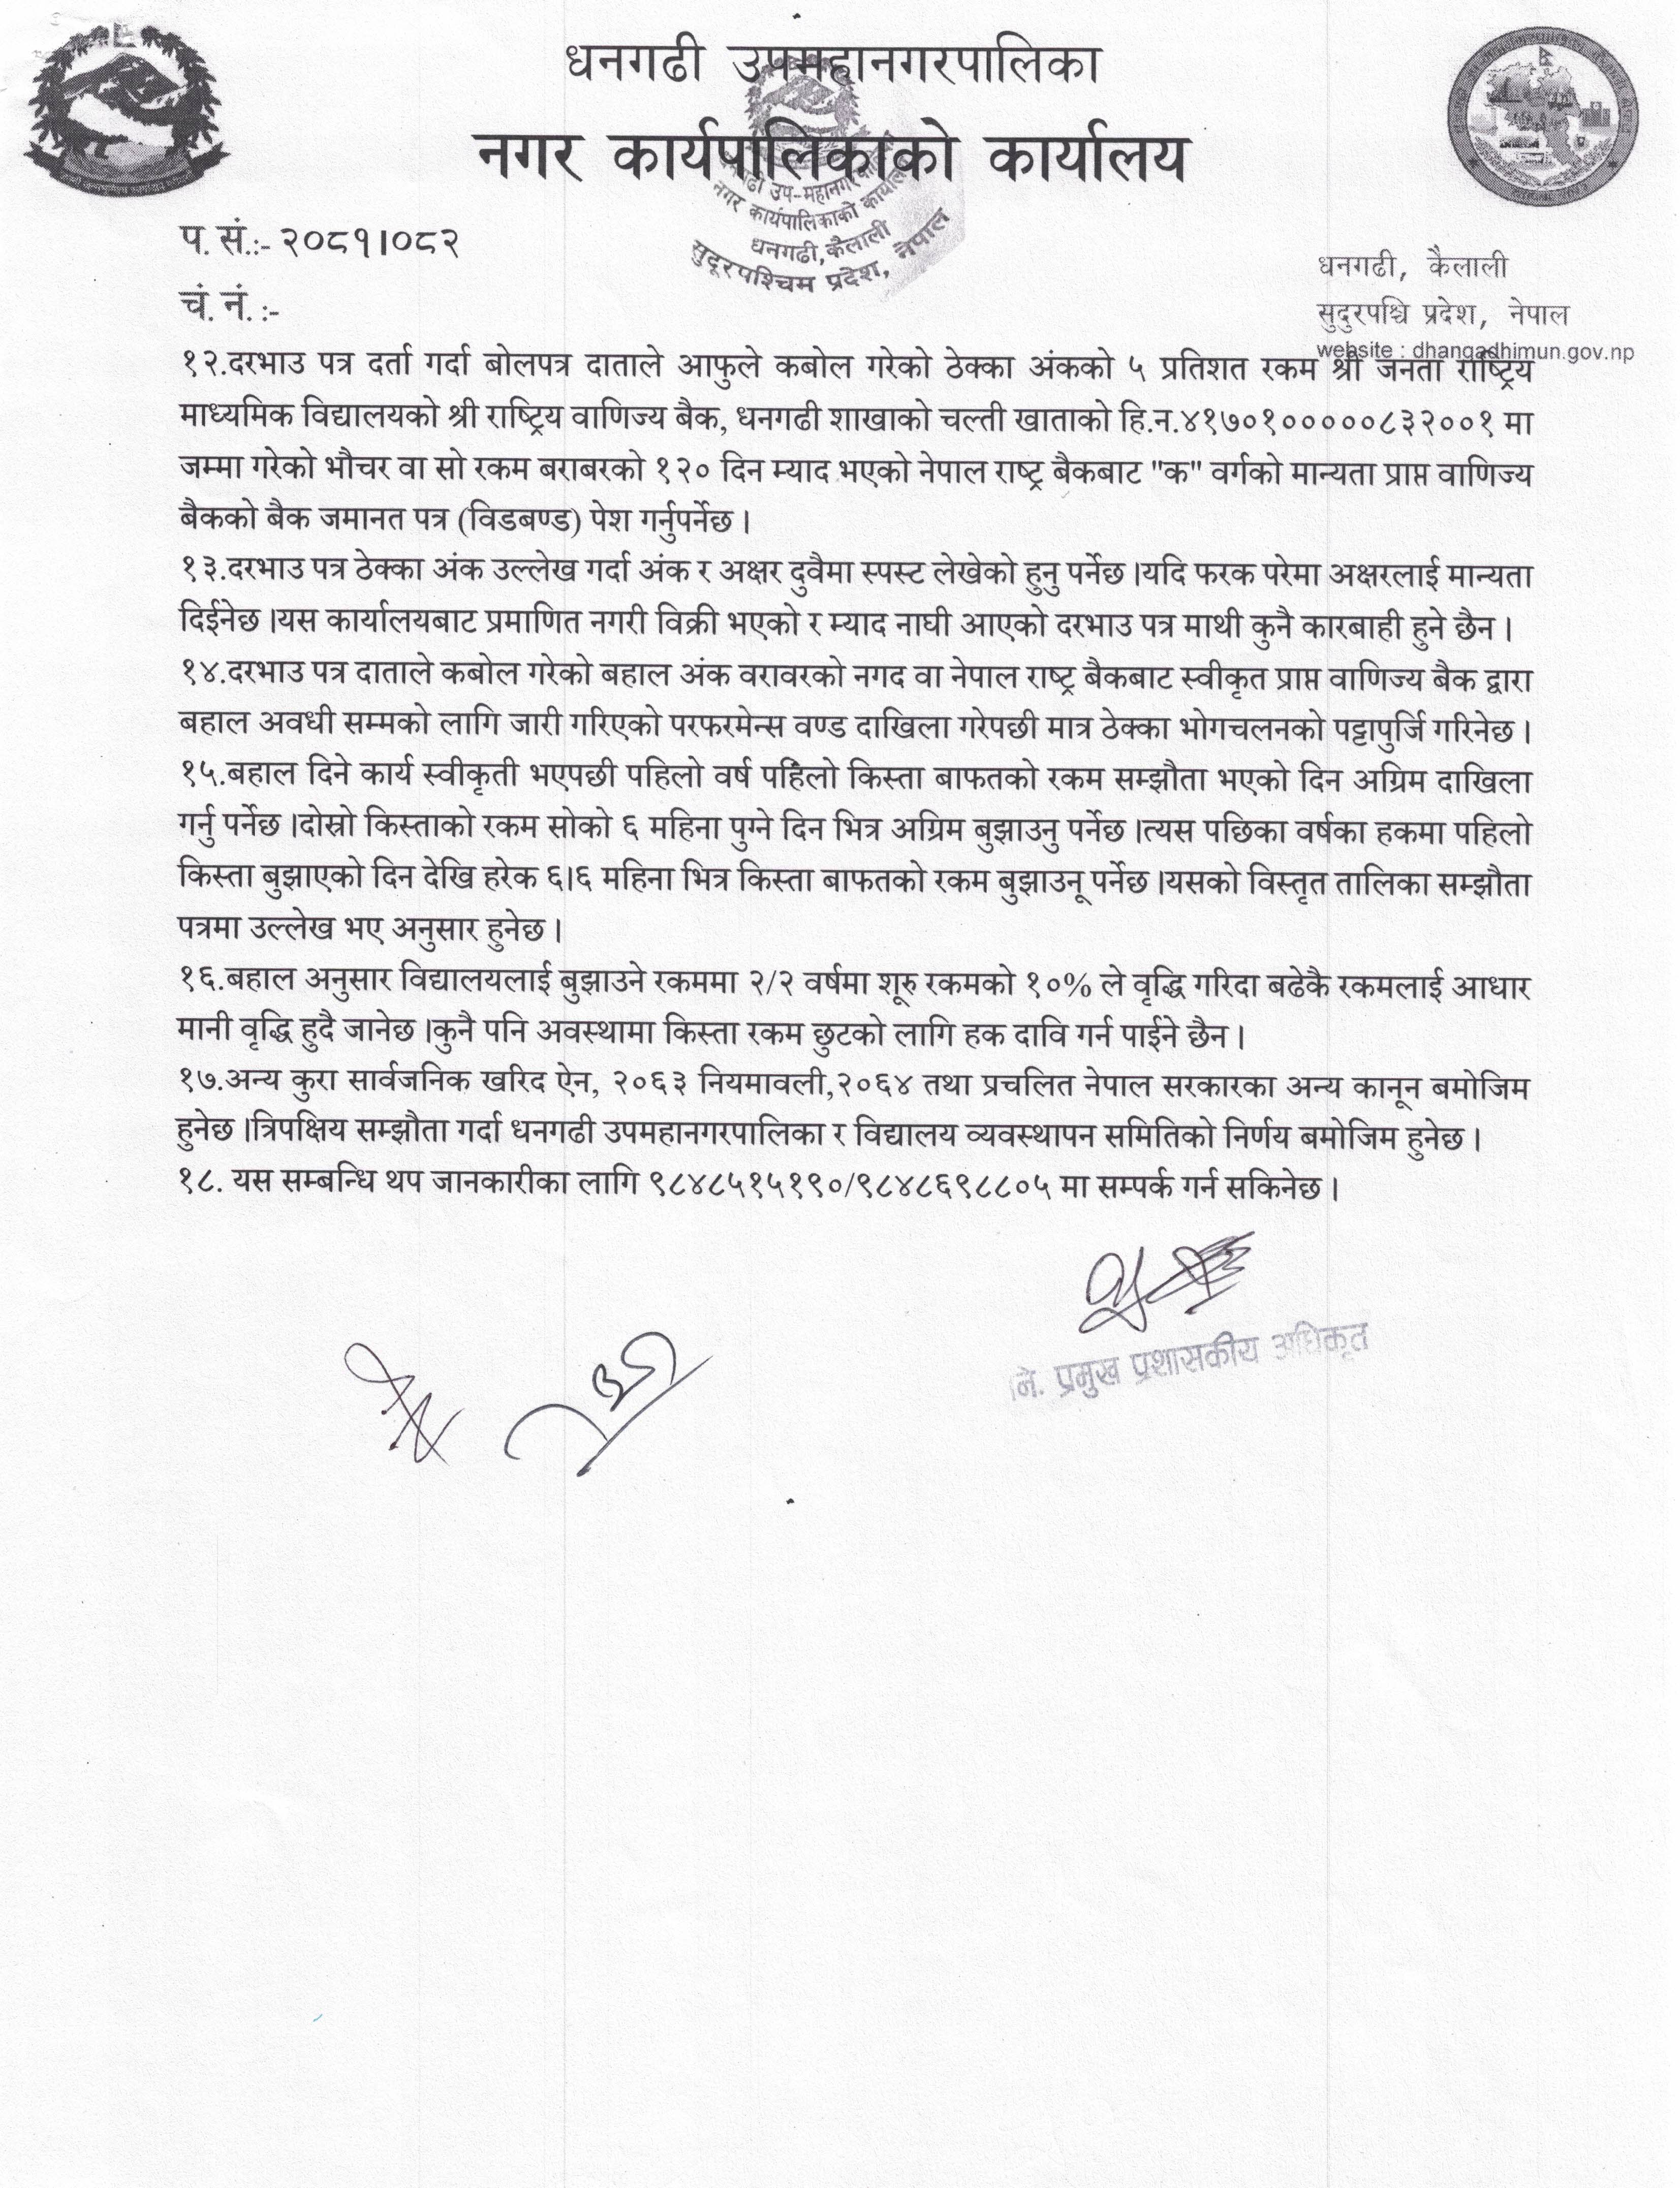 धनगढी उपमहानगरपालिका
नगर कार्यपालिकाको कार्यालय
उप-महानगर
नगर कार्यपालिकाको कार्यालय
धनगढी, कैलाली
सुदूरपश्चिम प्रदेश, नेपाल
प. सं.:- २०८१।०८२
चं. नं. :-
धनगढी, कैलाली
सुदुरपश्चि प्रदेश, नेपाल
website : dhangadhimun.gov.np
१२.दरभाउ पत्र दर्ता गर्दा बोलपत्र दाताले आफुले कबोल गरेको ठेक्का अंकको ५ प्रतिशत रकम श्री जनता राष्ट्रिय
माध्यमिक विद्यालयको श्री राष्ट्रिय वाणिज्य बैक, धनगढी शाखाको चल्ती खाताको हि.न.४१७०१०००००८३२००१ मा
जम्मा गरेको भौचर वा सो रकम बराबरको १२० दिन म्याद भएको नेपाल राष्ट्र बैकबाट "क" वर्गको मान्यता प्राप्त वाणिज्य
बैकको बैक जमानत पत्र (विडबण्ड) पेश गर्नुपर्नेछ ।
१३.दरभाउ पत्र ठेक्का अंक उल्लेख गर्दा अंक र अक्षर दुवैमा स्पस्ट लेखेको हुनु पर्नेछ ।यदि फरक परेमा अक्षरलाई मान्यता
दिईनेछ ।यस कार्यालयबाट प्रमाणित नगरी विक्री भएको र म्याद नाघी आएको दरभाउ पत्र माथी कुनै कारबाही हुने छैन ।
१४.दरभाउ पत्र दाताले कबोल गरेको बहाल अंक वरावरको नगद वा नेपाल राष्ट्र बैकबाट स्वीकृत प्राप्त वाणिज्य बैक द्वारा
बहाल अवधी सम्मको लागि जारी गरिएको परफरमेन्स वण्ड दाखिला गरेपछी मात्र ठेक्का भोगचलनको पट्टापुर्जि गरिनेछ ।
१५.बहाल दिने कार्य स्वीकृती भएपछी पहिलो वर्ष पहिलो किस्ता बाफतको रकम सम्झौता भएको दिन अग्रिम दाखिला
गर्नु पर्नेछ ।दोस्रो किस्ताको रकम सोको ६ महिना पुग्ने दिन भित्र अग्रिम बुझाउनु पर्नेछ ।त्यस पछिका वर्षका हकमा पहिलो
किस्ता बुझाएको दिन देखि हरेक ६।६ महिना भित्र किस्ता बाफतको रकम बुझाउनू पर्नेछ ।यसको विस्तृत तालिका सम्झौता
पत्रमा उल्लेख भए अनुसार हुनेछ ।
१६.बहाल अनुसार विद्यालयलाई बुझाउने रकममा २/२ वर्षमा शूरु रकमको १०% ले वृद्धि गरिदा बढेकै रकमलाई आधार
मानी वृद्धि हुदै जानेछ ।कुनै पनि अवस्थामा किस्ता रकम छुटको लागि हक दावि गर्न पाईने छैन ।
१७.अन्य कुरा सार्वजनिक खरिद ऐन, २०६३ नियमावली,२०६४ तथा प्रचलित नेपाल सरकारका अन्य कानून बमोजिम
हुनेछ ।त्रिपक्षिय सम्झौता गर्दा धनगढी उपमहानगरपालिका र विद्यालय व्यवस्थापन समितिको निर्णय बमोजिम हुनेछ ।
१८. यस सम्बन्धि थप जानकारीका लागि ९८४८५१५१९०/९८४८६९८८०५ मा सम्पर्क गर्न सकिनेछ ।
नि. प्रमुख प्रशासकीय अधिकृत